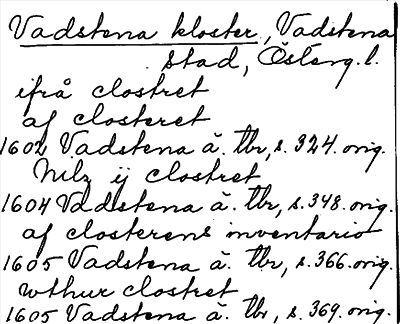 Vadstena kloster, Vadstena
stad, Österg. l.
ifrå clostret
af closteret
1602 Vadstena ä. tbr, s. 324. orig.
Nilz ij clostret
1604 Vadstena ä. tbr, s. 348. orig.
af closterens inventario
1605 Vadstena ä. tbr, s. 366. orig.
wthur clostret
1605 Vadstena ä. tbr, s. 369. orig.